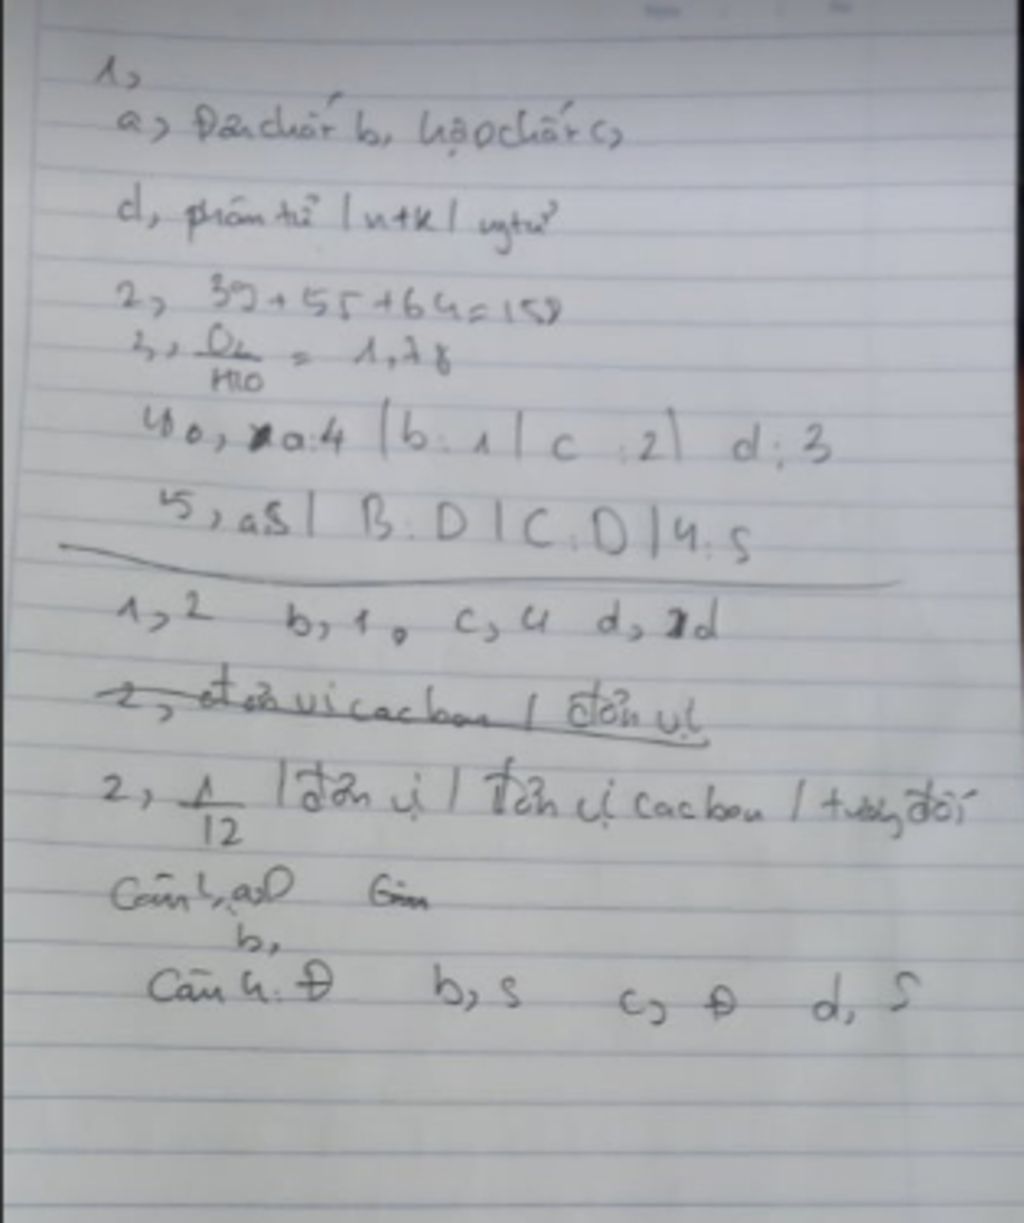 1,
a, Đơn chất b, hợp chất c,
d, phân tử |
2, 39 + 55 + 64 = 158
3, O2/H2O = 1,78
a:4 | b:1 | c:2 | d:3
5, a S | B:D | C:D | 4:S
1, 2 b, 1, c, 4 d,
2, đơn vị cacbon / đơn vị
2, 1/12 | đơn vị | đơn vị cacbon / tương đối
b,
Câu 4. Đ b, S c, Đ d, S